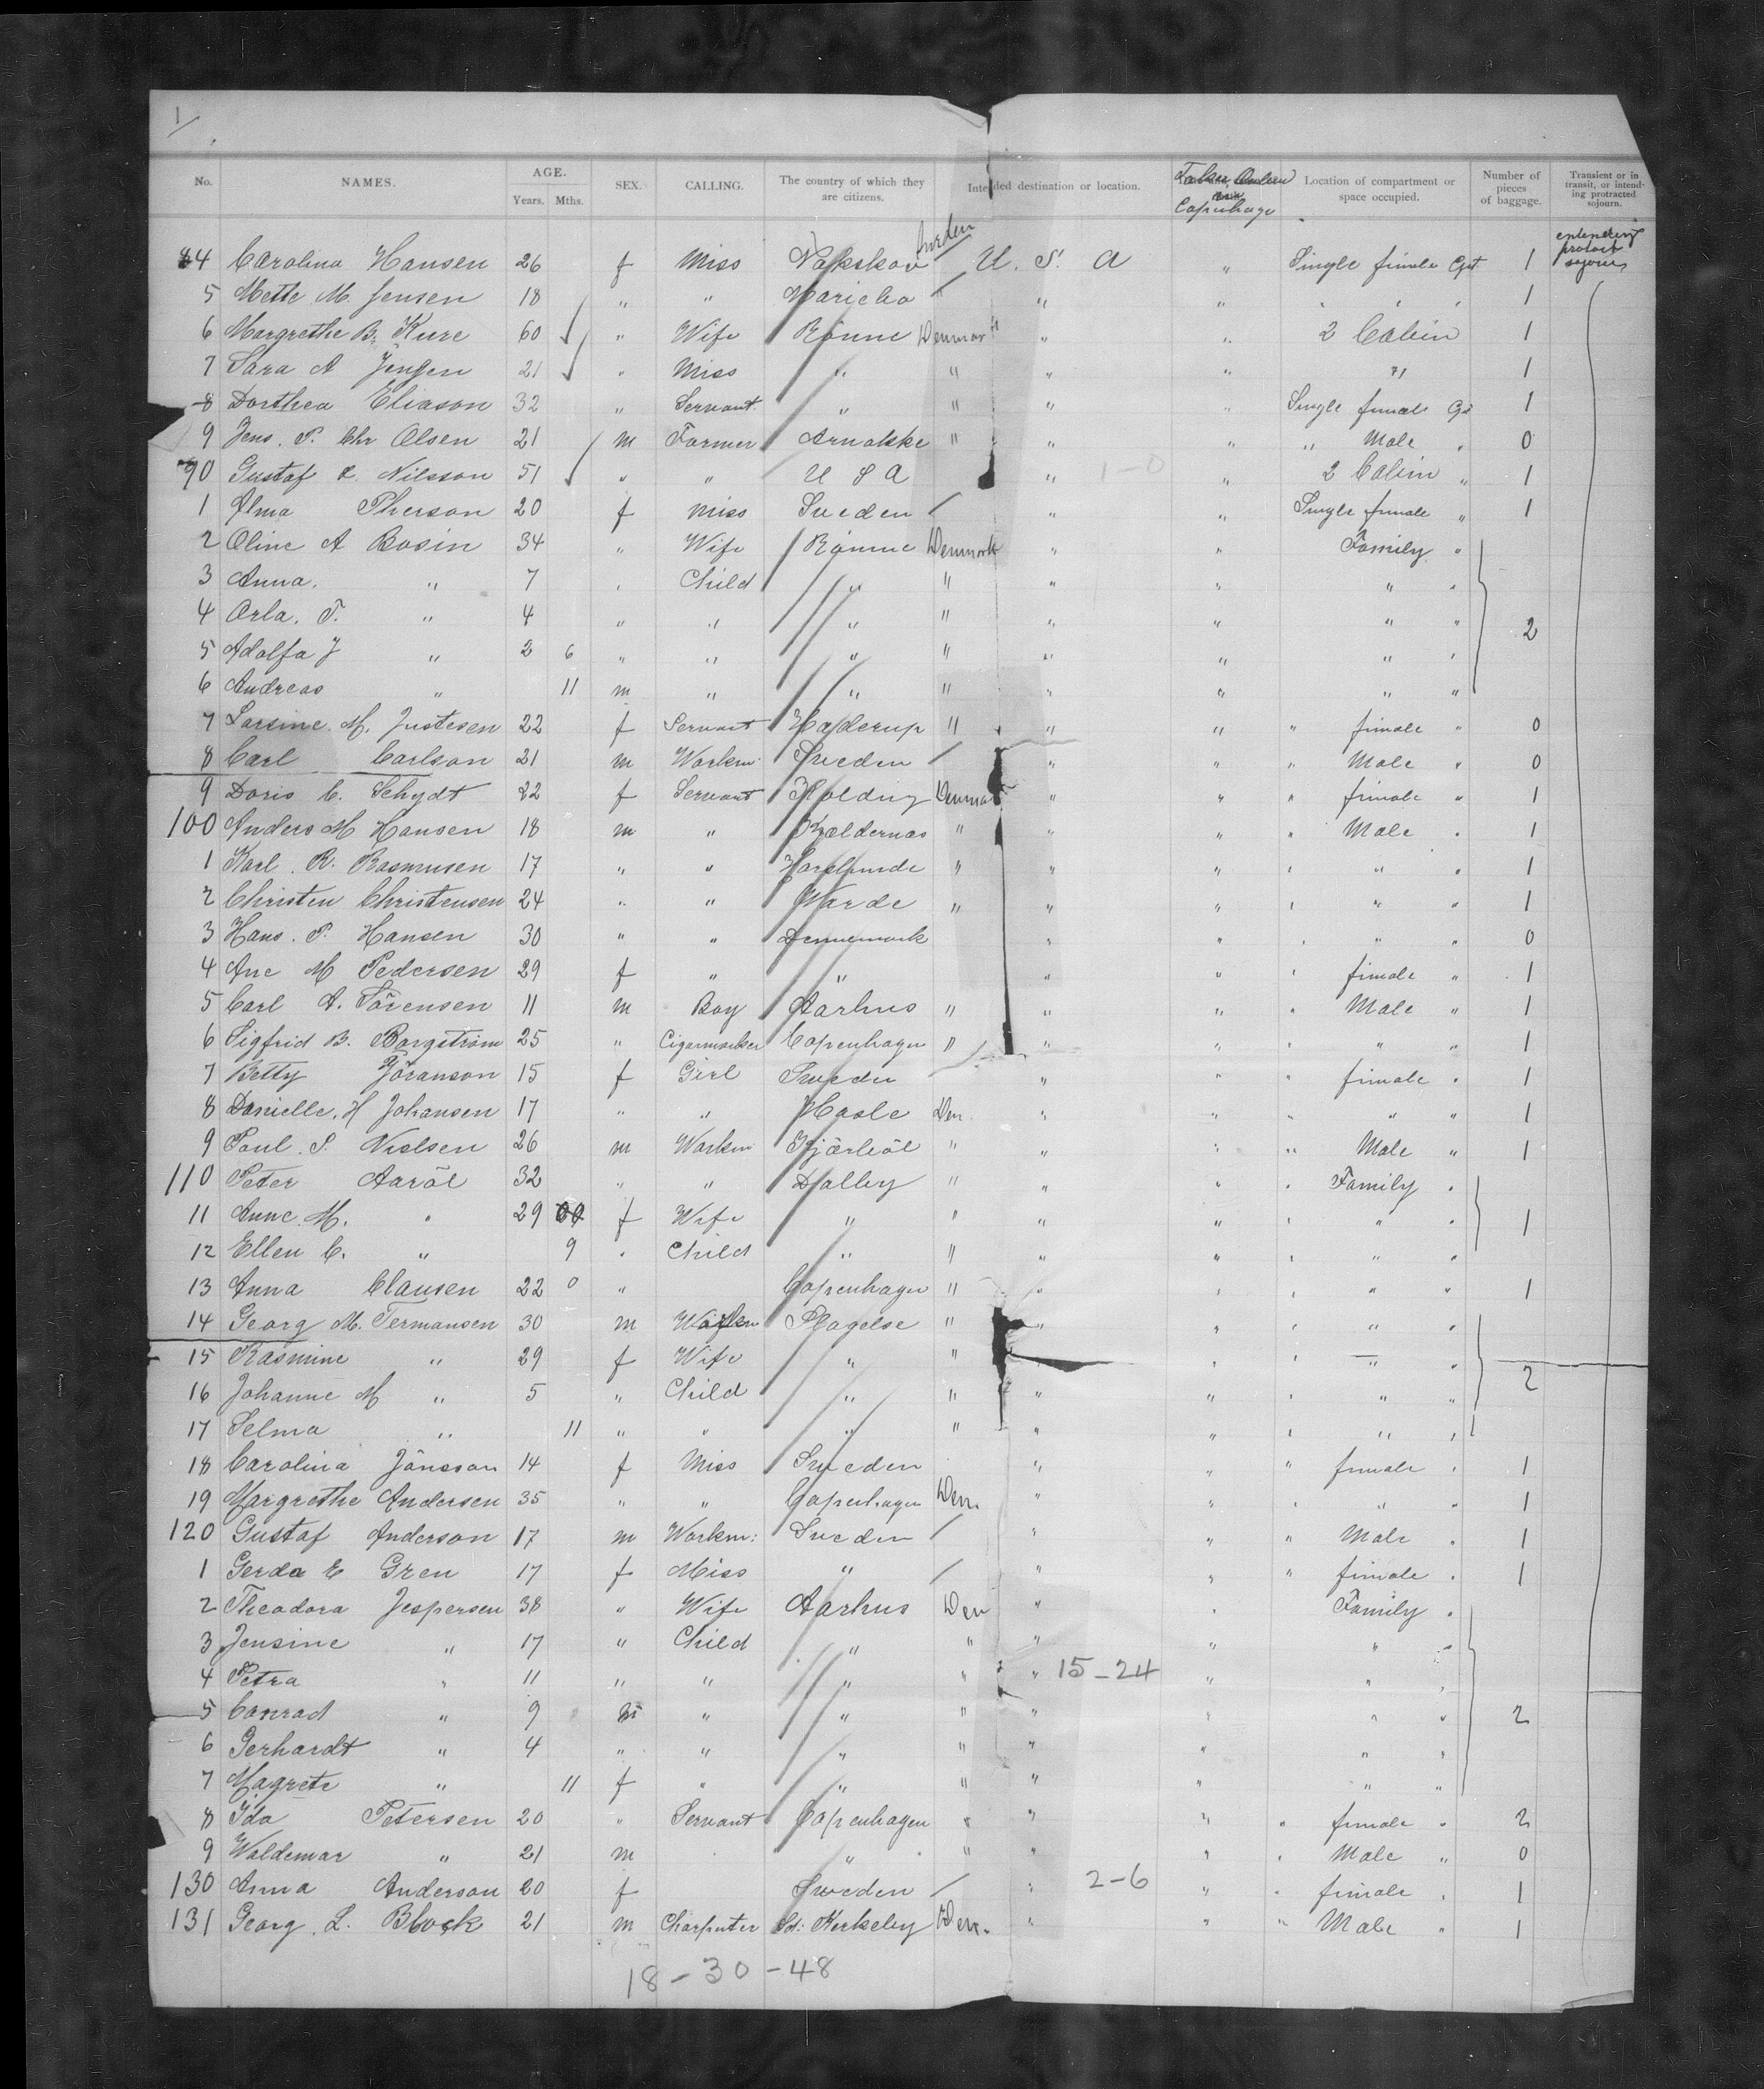 1/
No. NAMES. AGE. Years. Mths. SEX. CALLING. The country of which they are citizens. Intended destination or location. Copenhagen Location of compartment or space occupied. Number of pieces of baggage. Transient or in transit, or intending protracted sojourn.
84 Carolina Hansen 26 f Miss Nakskov Sweden U. S. A " Single female Cpt. 1
5 Mette M. Jensen 18 " " Maribo " " " " " " 1
6 Margrethe B. Kure 60 " Wife Rönne Denmark " " 2 Cabin 1
7 Sara A Jensen 21 " Miss " " " " " 1
8 Dorthea Eliason 32 " Servant " " " " Single female Cpt 1
9 Jens. P. Chr Olsen 21 m Farmer Arnakke " " " " Male " 0
90 Gustaf A. Nilsson 51 " " U S A " 1-0 " 2 Cabin " 1
1 Alma Pherson 20 f Miss Sweden / " " Single female " 1
2 Oline A Bosin 34 " Wife Rönne Denmark " " Family "
3 Anna. " 7 " Child " " " " " "
4 Orla. T. " 4 " " " " " " " " 2
5 Adolfa J " 2 6 " " " " " " " "
6 Andreas " 11 m " " " " " " "
7 Larsine M. Justesen 22 f Servant Haderup " " " " female " 0
8 Carl Carlson 21 m Workm. Sweden / " " " Male " 0
9 Doris C. Schydt 22 f Servant Kolding Denmark " " " female " 1
100 Anders M Hansen 18 m " Kjeldernas " " " " Male " 1
1 Karl. R. Rasmusen 17 " " Horslunde " " " " " " 1
2 Christen Christensen 24 " " Warde " " " " " " 1
3 Hans. P. Hansen 30 " " Dennemark " " " " " 0
4 Ane M Pedersen 29 f " " " " " female " 1
5 Carl A. Sörensen 11 m Boy Aarhus " " " " Male " 1
6 Sigfrid B. Borgström 25 " Cigarmaker Copenhagen " " " " " " 1
7 Betty Jöranson 15 f Girl Sweden / " " " female " 1
8 Danielle. H Johansen 17 " " Hasle Den. " " " " " 1
9 Poul. S. Nielsen 26 m Workm " " " " Male " 1
110 Peter Aaröe 32 " " Dalby " " " " Family "
11 Anne M. " 29 f Wife " " " " " " " 1
12 Ellen C. " 9 " Child " " " " " " "
13 Anna Clausen 22 0 " Copenhagen " " " " " " 1
14 Georg M. Termansen 30 m Workm Slagelse " " " " " "
15 Rasmine " 29 f Wife " " " " " "
16 Johanne M " 5 " Child " " " " " " " 2
17 Selma " 11 " " " " " " " " "
18 Carolina Jönsson 14 f Miss Sweden " " " female " 1
19 Margrethe Andersen 35 " " Copenhagen Den. " " " " " 1
120 Gustaf Anderson 17 m Workm: Sweden / " " " Male " 1
1 Gerda E Gren 17 f Miss " / " " female " 1
2 Theodora Jespersen 38 " Wife Aarhus Den " " Family "
3 Jensine " 17 " Child " " " " " "
4 Petra " 11 " " " " " 15-24 " " "
5 Conrad " 9 m " " " " " " " 2
6 Gerhardt " 4 " " " " " " " "
7 Magrete " 11 f " " " " " " "
8 Ida Petersen 20 " Servant Copenhagen " " " " female " 2
9 Waldemar " 21 m " " " " " Male " 0
130 Anna Anderson 20 f Sweden / " 2-6 " " female " 1
131 Georg. L. Block 21 m Charpenter Sdr. Kirkeby Den. " " " Male " 1
18-30-48